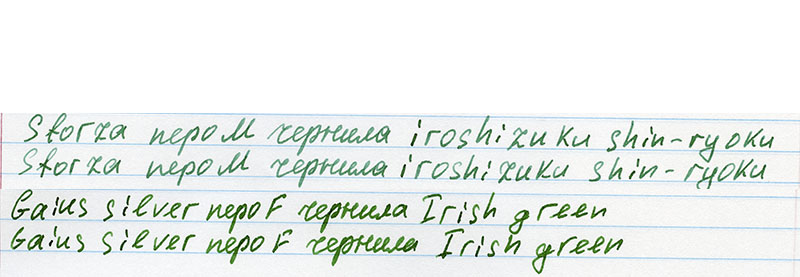 Sforza перо M чернила iroshizuku shin-ryoku
Sforza перо M чернила iroshizuku shin-ryoku
Gaius silver перо F чернила Irish green
Gaius silver перо F чернила Irish green